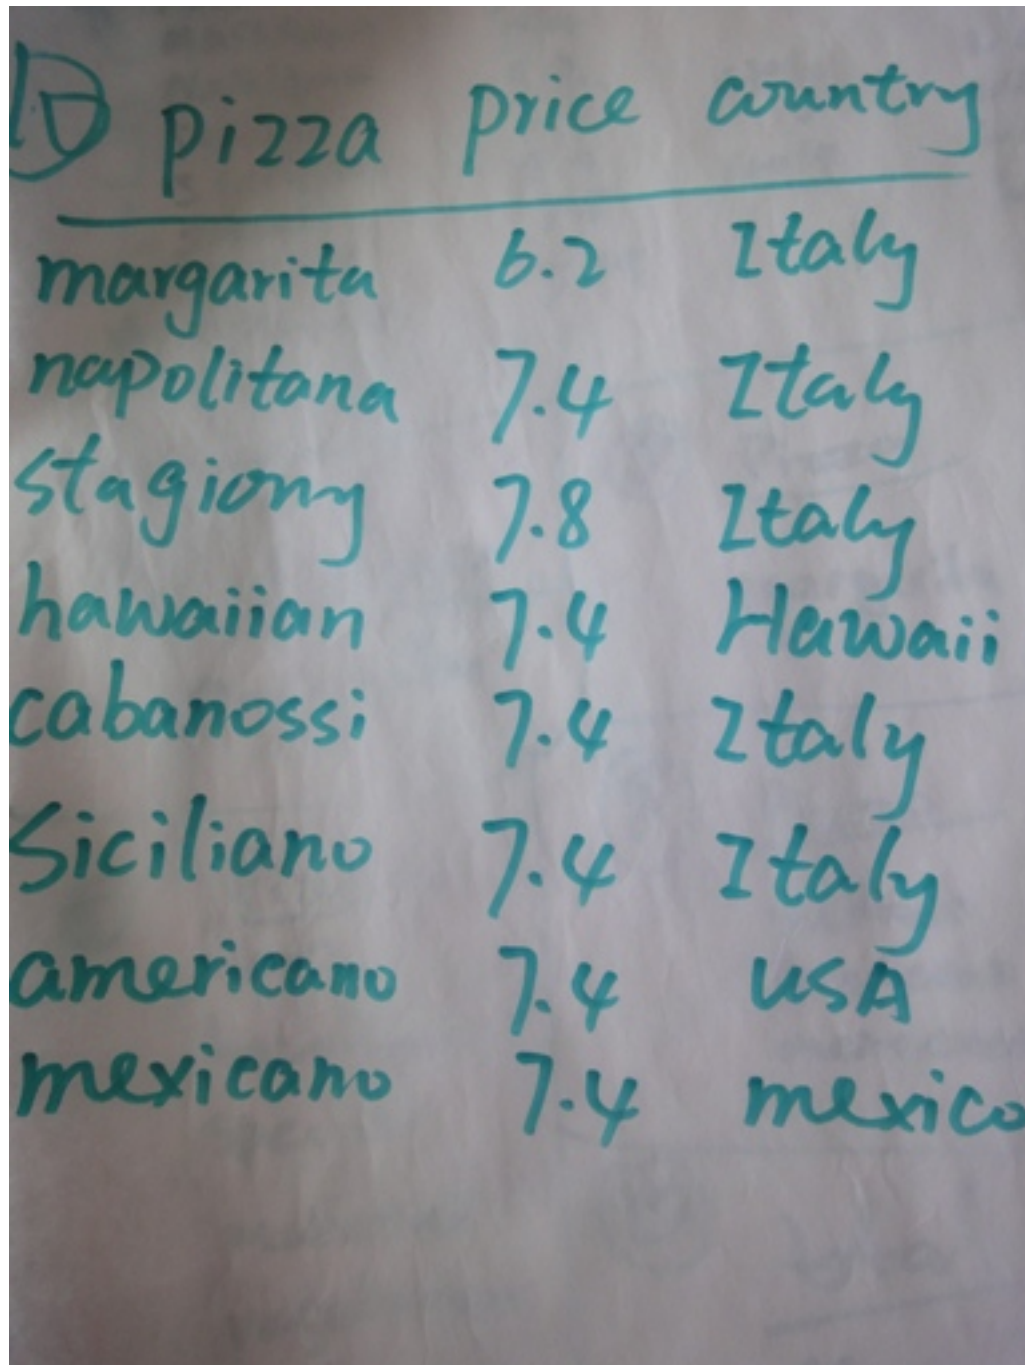 pizza price country
margarita 6.2 Italy
napolitana 7.4 Italy
stagiony 7.8 Italy
hawaiian 7.4 Hawaii
cabanossi 7.4 Italy
Siciliano 7.4 Italy
americano 7.4 USA
mexicano 7.4 mexico